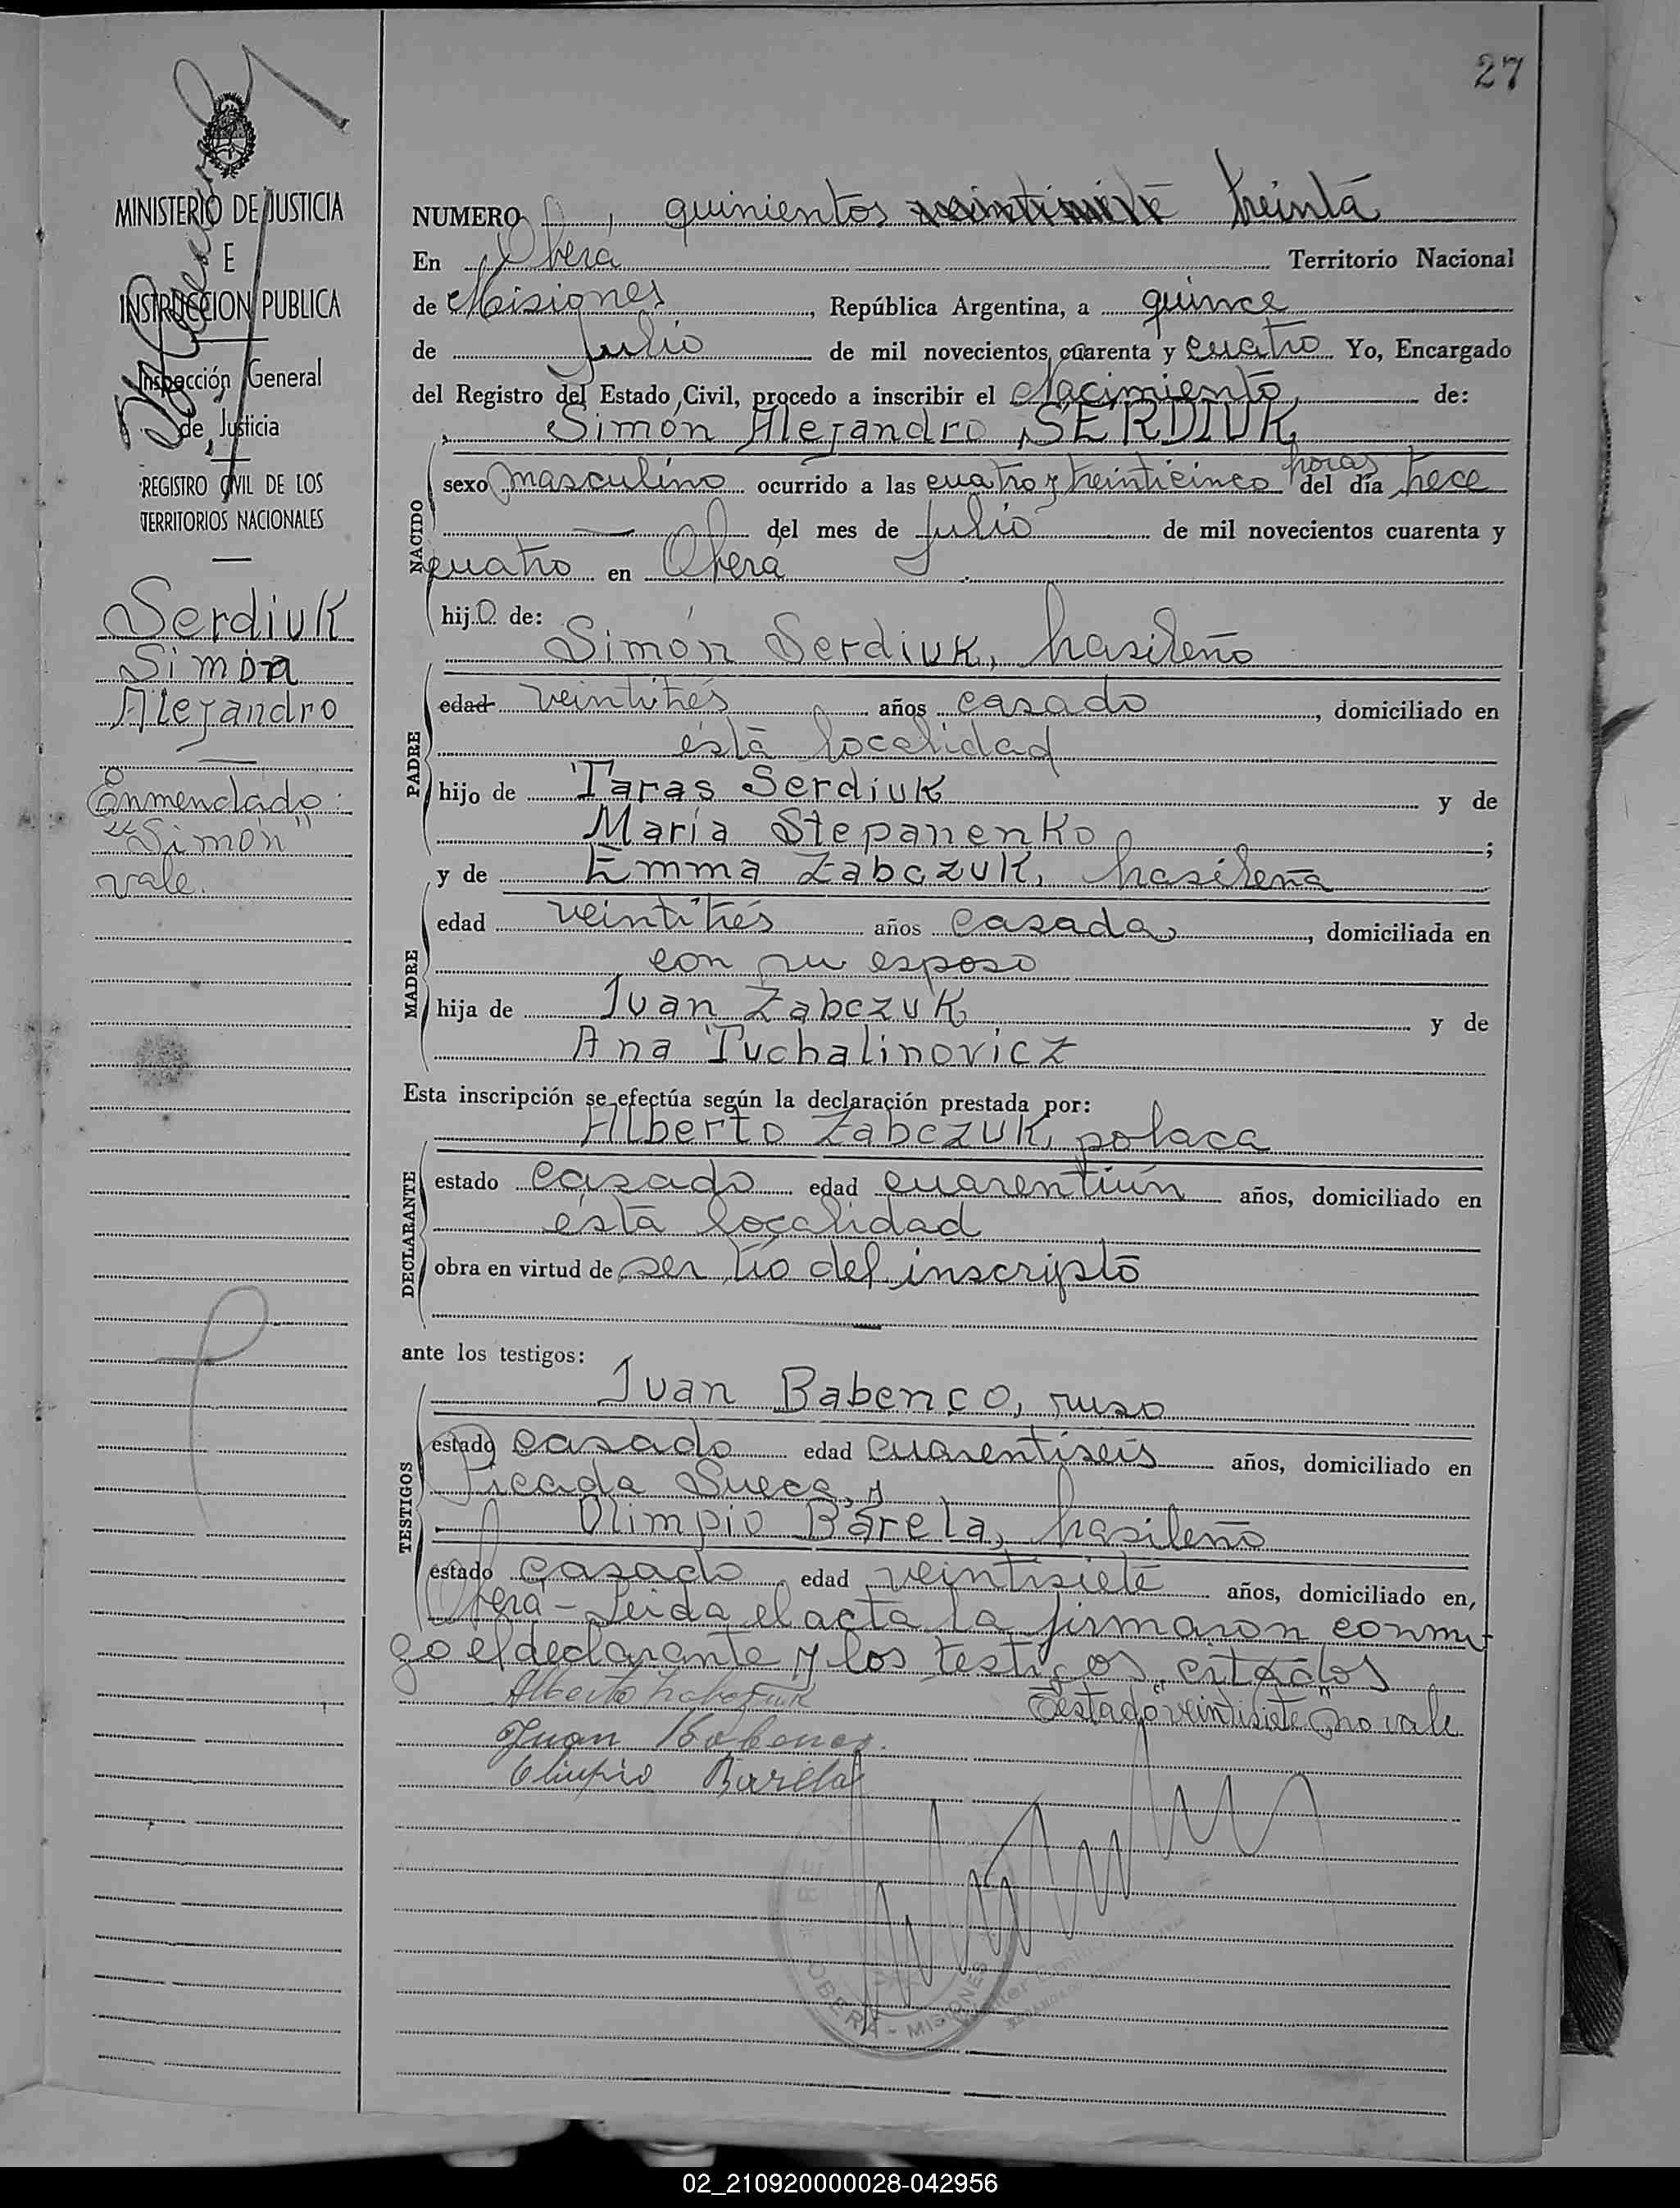 27
MINISTERIO DE JUSTICIA
E
INSTRUCCION PUBLICA
Inspección General
de Justicia
REGISTRO CIVIL DE LOS
TERRITORIOS NACIONALES
Serdiuk
Simón
Alejandro
Enmendado:
"Simón"
vale.
NUMERO quinientos treinta
En Oberá Territorio Nacional
de Misiones, República Argentina, a quince
de Julio de mil novecientos cuarenta y cuatro Yo, Encargado
del Registro del Estado Civil, procedo a inscribir el Nacimiento de:
Simón Alejandro SERDIUK
NACIDO
horas
sexo masculino ocurrido a las cuatro y treinticinco del día trece
del mes de Julio de mil novecientos cuarenta y
cuatro en Oberá
hijo de:
Simón Serdiuk, brasileño
PADRE
edad veintitrés años casado, domiciliado en
ésta localidad
hijo de Taras Serdiuk y de
María Stepanenko;
y de Emma Zabczuk, brasileña
MADRE
edad veintitrés años casada, domiciliada en
con su esposo
hija de Iván Zabczuk y de
Ana Tuchalinovicz
Esta inscripción se efectúa según la declaración prestada por:
Alberto Zabczuk, polaca
DECLARANTE
estado casado edad cuarentiún años, domiciliado en
ésta localidad
obra en virtud de ser tío del inscripto
ante los testigos:
Juan Babenco, ruso
TESTIGOS
estado casado edad cuarentiseis años, domiciliado en
Picada Sueca, y
Olimpio Barela, brasileño
estado casado edad veintisiete años, domiciliado en,
Oberá - Leida el acta la firmaron conmi-
go el declarante y los testigos citados
Testado "veintisiete" no vale
Alberto Zabczuk
Juan Babenco.
Olimpio Barela
OBERA - MISIONES
02_210920000028-042956